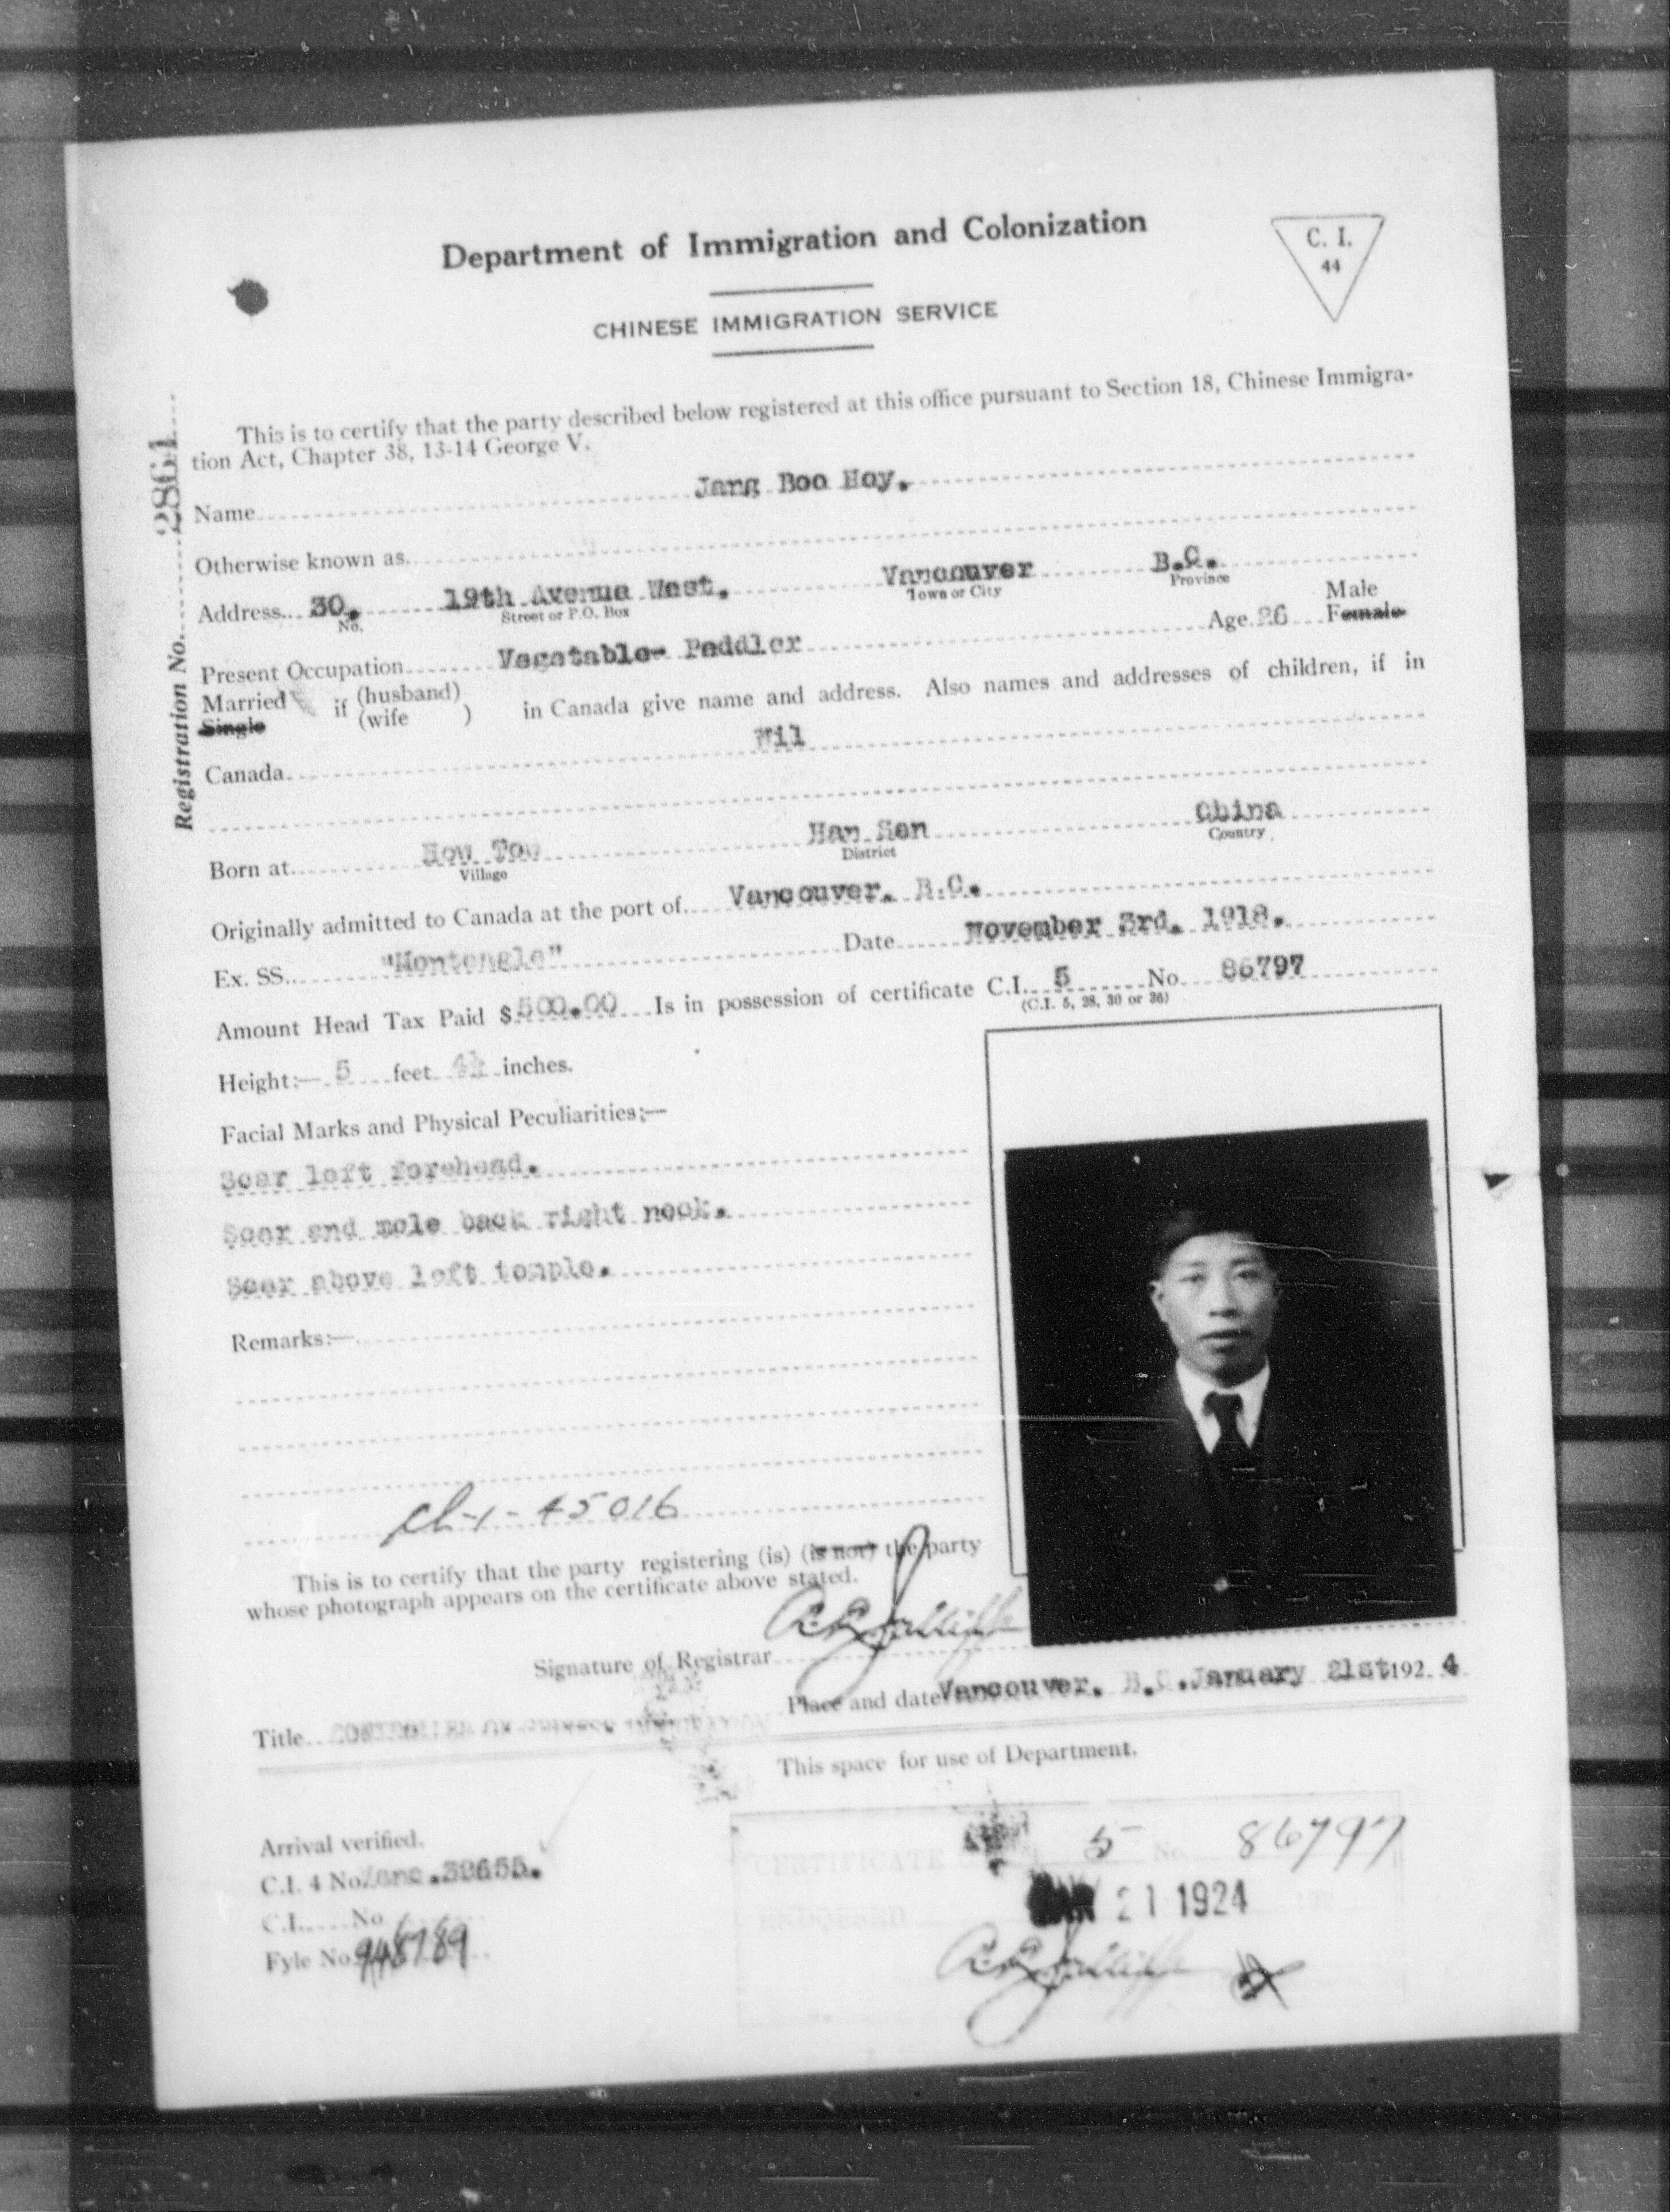 Department of Immigration and Colonization
C. I.
44
CHINESE IMMIGRATION SERVICE
Registration No. 2861
This is to certify that the party described below registered at this office pursuant to Section 18, Chinese Immigra-
tion Act, Chapter 38, 13-14 George V.
Name Jang Boo Hoy.
Otherwise known as
Address 30, 19th Avenue West. Vancouver B.C.
No. Street or P.O. Box Town or City Province
Male
Present Occupation Vegetable- Peddler Age 26 Female
Married if (husband) in Canada give name and address. Also names and addresses of children, if in
Single (wife )
Canada Nil
Born at How Tow Han Sen China
Village District Country
Originally admitted to Canada at the port of Vancouver. B.C.
Ex. SS. "Monteagle" Date November 3rd. 1918.
Amount Head Tax Paid $ 500.00 Is in possession of certificate C.I. 5 No. 86797
(C.I. 5, 28, 30 or 36)
Height:— 5 feet 4½ inches.
Facial Marks and Physical Peculiarities;—
Scar left forehead.
Scar and mole back right neck.
Scar above left temple.
Remarks:—
45016
This is to certify that the party registering (is) (is not) the party
whose photograph appears on the certificate above stated.
Signature of Registrar
Place and date Vancouver. B.C. January 21st 192 4
Title CONTROLLER OF CHINESE IMMIGRATION
This space for use of Department.
Arrival verified.
C.I. 4 No. Vanc. 32655.
C.I. No.
Fyle No. 948789
CERTIFICATE C.I. 5 No. 86797
ENDORSED 21 1924